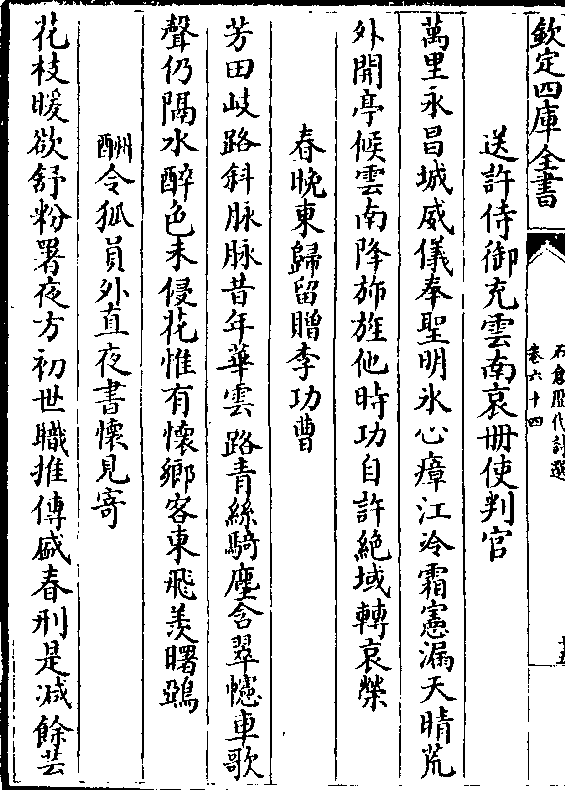 欽定四庫全書
石倉歷代詩選
卷六十四
十五
送許侍御充雲南哀冊使判官
萬里永昌城威儀奉聖明氷心瘴江冷霜憲漏天晴荒
外開亭候雲南降斾旌他時功自許絶域轉哀榮
春晩東歸留贈李功曹
芳田岐路斜脉脉昔年華雲路青絲騎塵含翠幰車歌
聲仍隔水醉色未侵花惟有懷鄉客東飛羨曙鵶
酬令狐員外直夜書懷見寄
花枝暖欲舒粉署夜方初世職推傳盛春刑是减餘芸